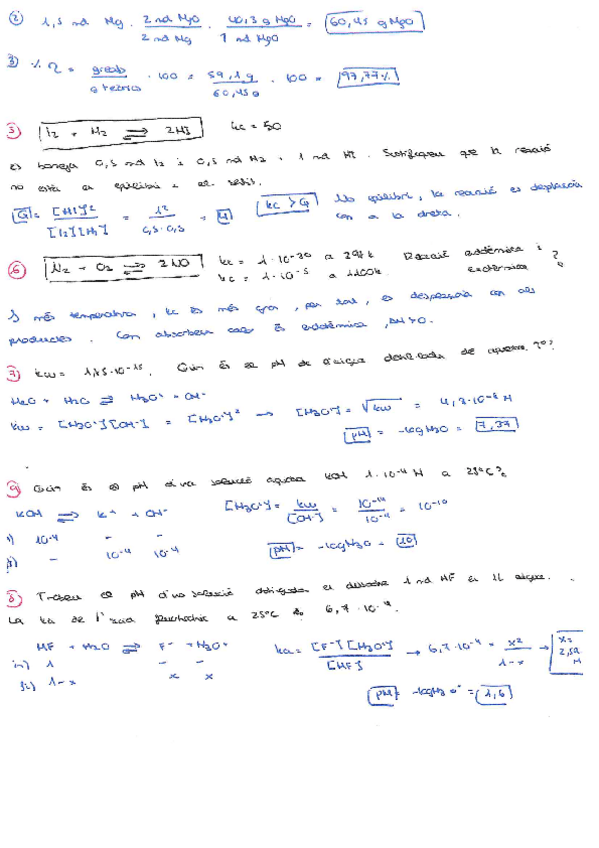 ② 1,5 mol Mg · 2 mol MgO / 2 mol Mg · 40,3 g MgO / 1 mol MgO = 60,45 g MgO
③ % η = g reals / g teòrics · 100 = 59,1 g / 60,45 g · 100 = 97,77%
⑤ I2 + H2 ⇌ 2HI Kc = 50
Es barreja 0,5 mol I2 i 0,5 mol H2 i 1 mol HI. Justifiqueu que la reacció
no està en equilibri i el sentit.
Q = [HI]² / [I2][H2] = 1² / 0,5 · 0,5 = 4 Kc > Q No equilibri, la reacció es desplaça
cap a la dreta.
⑥ N2 + O2 ⇌ 2NO Kc = 1·10⁻³⁰ a 298 K Reacció endotèrmica i
Kc = 1·10⁻⁵ a 1100K. exotèrmica ?
A més temperatura, Kc és més gran, per tant, es desplaça cap als
productes. Com absorbeix calor És endotèrmica, ΔH>0.
⑦ Kw = 1,85·10⁻¹⁵. Quin És el pH de l'aigua destil·lada de
H2O + H2O ⇌ H3O⁺ + OH⁻ [H3O⁺] = √Kw = 4,3·10⁻⁸ M
Kw = [H3O⁺][OH⁻] = [H3O⁺]² → pH = -log H3O = 7,37
⑨ Quin És el pH d'una solució aquosa KOH 1·10⁻⁴ M a 25°C?
KOH ⇌ K⁺ + OH⁻ [H3O⁺] = Kw / [OH⁻] = 10⁻¹⁴ / 10⁻⁴ = 10⁻¹⁰
i) 10⁻⁴ - -
f) - 10⁻⁴ 10⁻⁴ pH = -log H3O = 10
⑧ Trobeu el pH d'una solució obtinguda en dissoldre 1 mol HF en 1L aigua.
La Ka de l'àcid fluorhídric a 25°C és 6,7·10⁻⁴.
HF + H2O ⇌ F⁻ + H3O⁺ Ka = [F⁻][H3O⁺] / [HF] → 6,7·10⁻⁴ = x² / 1-x → x = 2,59 M
in) 1 - -
fi) 1-x x x
pH = -log H3O⁺ = 1,6